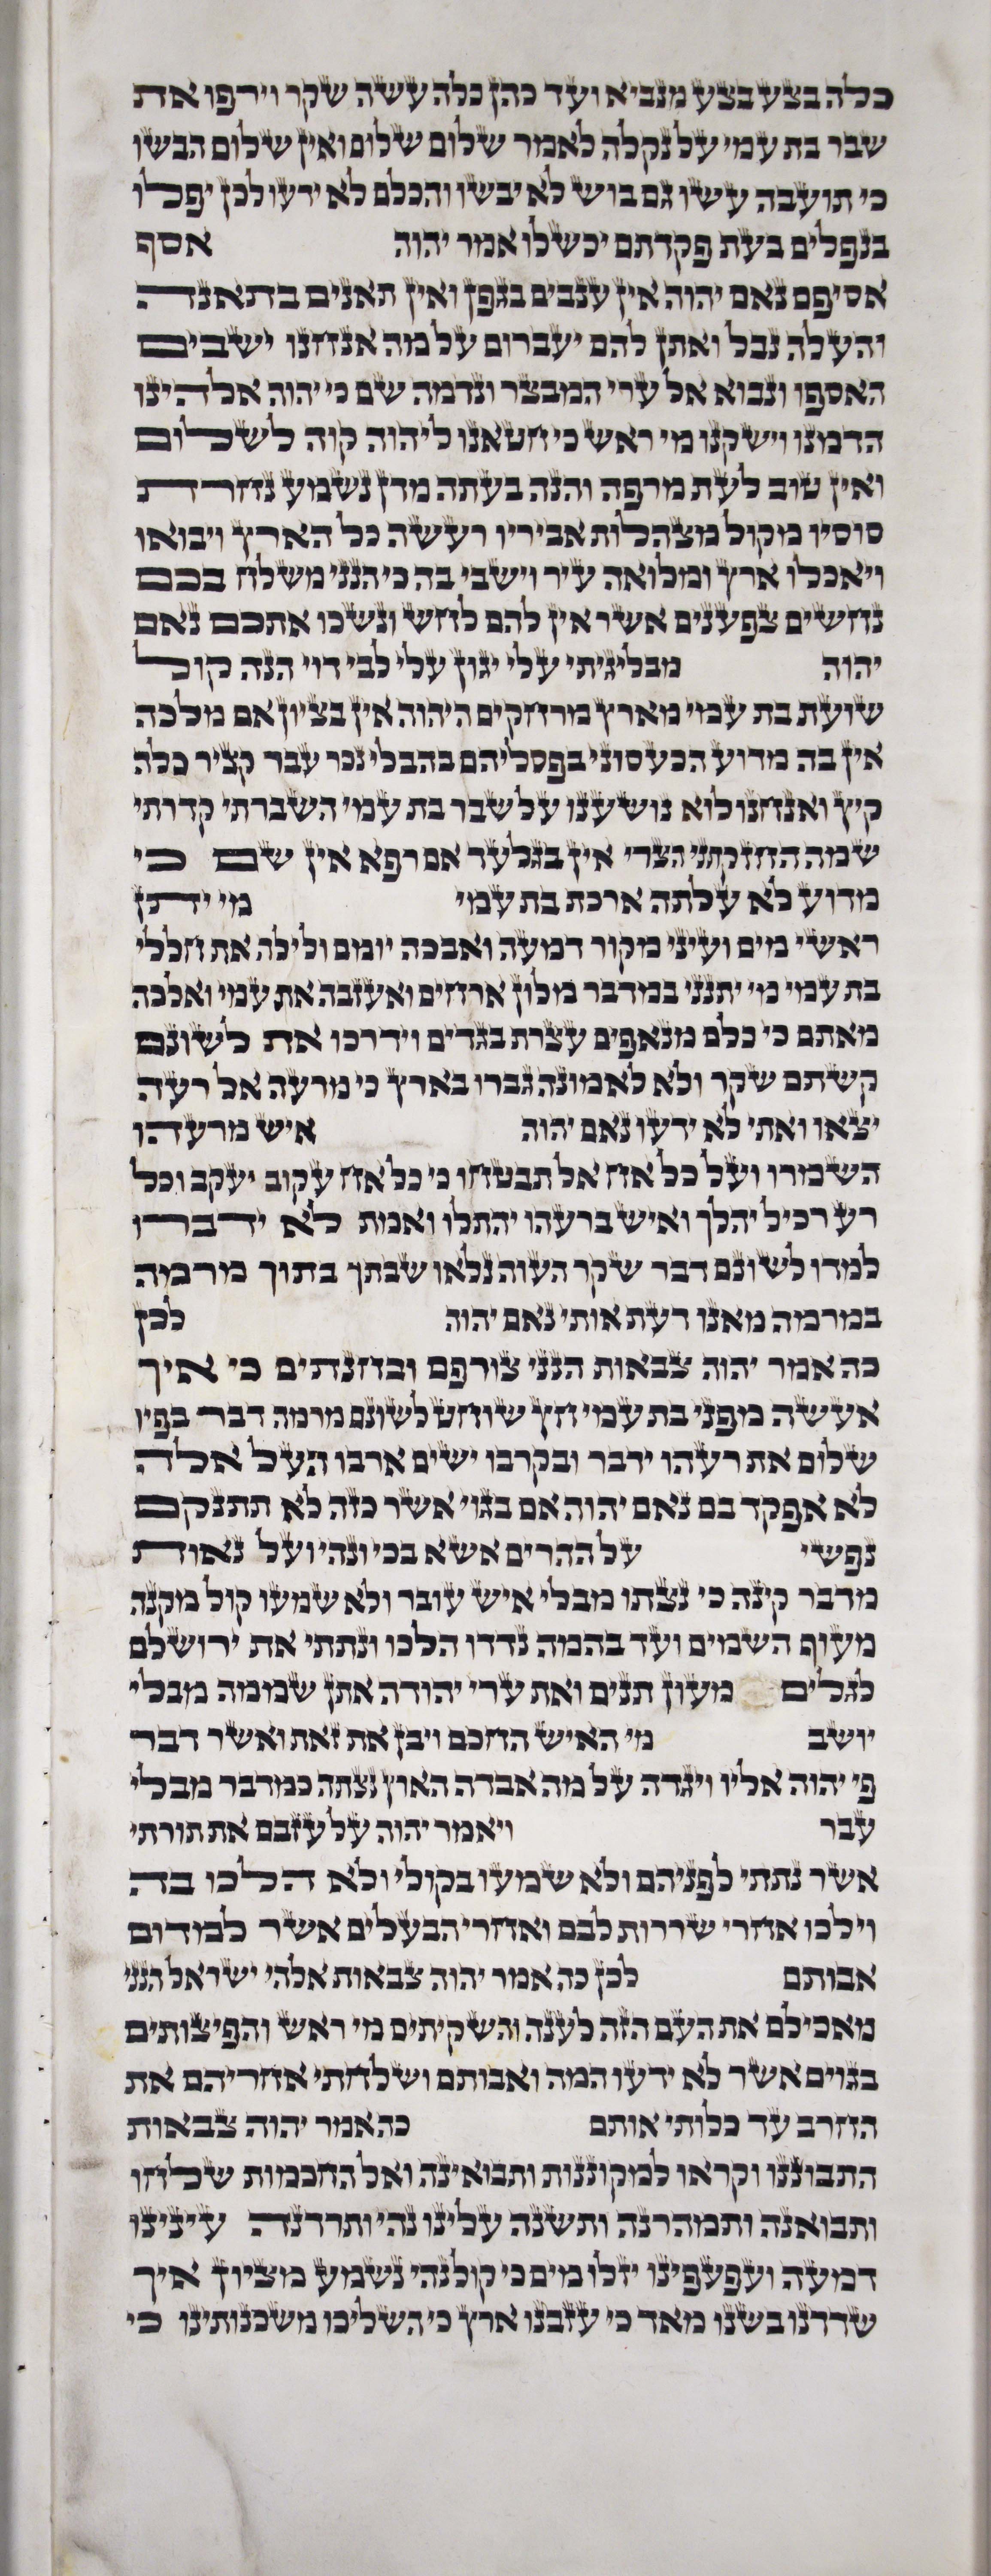 כלה בצע בצע מנביא ועד כהן כלה עשה שקר וירפו את
שבר בת עמי על נקלה לאמר שלום שלום ואין שלום הבשו
כי תועבה עשו גם בוש לא יבשו והכלם לא ידעו לכן יפלו
בנפלים בעת פקדתם יכשלו אמר יהוה אסף
אסיפם נאם יהוה אין ענבים בגפן ואין תאנים בתאנה
והעלה נבל ואתן להם יעברום על מה אנחנו ישבים
האספו ונבוא אל ערי המבצר ונדמה שם כי יהוה אלהינו
הדמנו וישקנו מי ראש כי חטאנו ליהוה קוה לשלום
ואין טוב לעת מרפה והנה בעתה מדן נשמע נחרת
סוסיו מקול מצהלות אביריו רעשה כל הארץ ויבואו
ויאכלו ארץ ומלואה עיר וישבי בה כי הנני משלח בכם
נחשים צפענים אשר אין להם לחש ונשכו אתכם נאם
יהוה מבליגיתי עלי יגון עלי לבי דוי הנה קול
שועת בת עמי מארץ מרחקים היהוה אין בציון אם מלכה
אין בה מדוע הכעסוני בפסליהם בהבלי נכר עבר קציר כלה
קיץ ואנחנו לוא נושענו על שבר בת עמי השברתי קדרתי
שמה החזקתני הצרי אין בגלעד אם רפא אין שם כי
מדוע לא עלתה ארכת בת עמי מי יתן
ראשי מים ועיני מקור דמעה ואבכה יומם ולילה את חללי
בת עמי מי יתנני במדבר מלון ארחים ואעזבה את עמי ואלכה
מאתם כי כלם מנאפים עצרת בגדים וידרכו את לשונם
קשתם שקר ולא לאמונה גברו בארץ כי מרעה אל רעה
יצאו ואתי לא ידעו נאם יהוה איש מרעהו
השמרו ועל כל אח אל תבטחו כי כל אח עקוב יעקב וכל
רע רכיל יהלך ואיש ברעהו יהתלו ואמת לא ידברו
למדו לשונם דבר שקר העוה נלאו שבתך בתוך מרמה
במרמה מאנו דעת אותי נאם יהוה לכן
כה אמר יהוה צבאות הנני צורפם ובחנתים כי איך
אעשה מפני בת עמי חץ שוחט לשונם מרמה דבר בפיו
שלום את רעהו ידבר ובקרבו ישים ארבו העל אלה
לא אפקד בם נאם יהוה אם בגוי אשר כזה לא תתנקם
נפשי על ההרים אשא בכי ונהי ועל נאות
מדבר קינה כי נצתו מבלי איש עובר ולא שמעו קול מקנה
מעוף השמים ועד בהמה נדדו הלכו ונתתי את ירושלם
לגלים מעון תנים ואת ערי יהודה אתן שממה מבלי
יושב מי האיש החכם ויבן את זאת ואשר דבר
פי יהוה אליו ויגדה על מה אבדה הארץ נצתה כמדבר מבלי
עבר ויאמר יהוה על עזבם את תורתי
אשר נתתי לפניהם ולא שמעו בקולי ולא הלכו בה
וילכו אחרי שררות לבם ואחרי הבעלים אשר למדום
אבותם לכן כה אמר יהוה צבאות אלהי ישראל הנני
מאכילם את העם הזה לענה והשקיתים מי ראש והפיצותים
בגוים אשר לא ידעו המה ואבותם ושלחתי אחריהם את
החרב עד כלותי אותם כה אמר יהוה צבאות
התבוננו וקראו למקוננות ותבואינה ואל החכמות שלחו
ותבואנה ותמהרנה ותשנה עלינו נהי ותרדנה עינינו
דמעה ועפעפינו יזלו מים כי קול נהי נשמע מציון איך
שדדנו בשנו מאד כי עזבנו ארץ כי השליכו משכנותינו כי